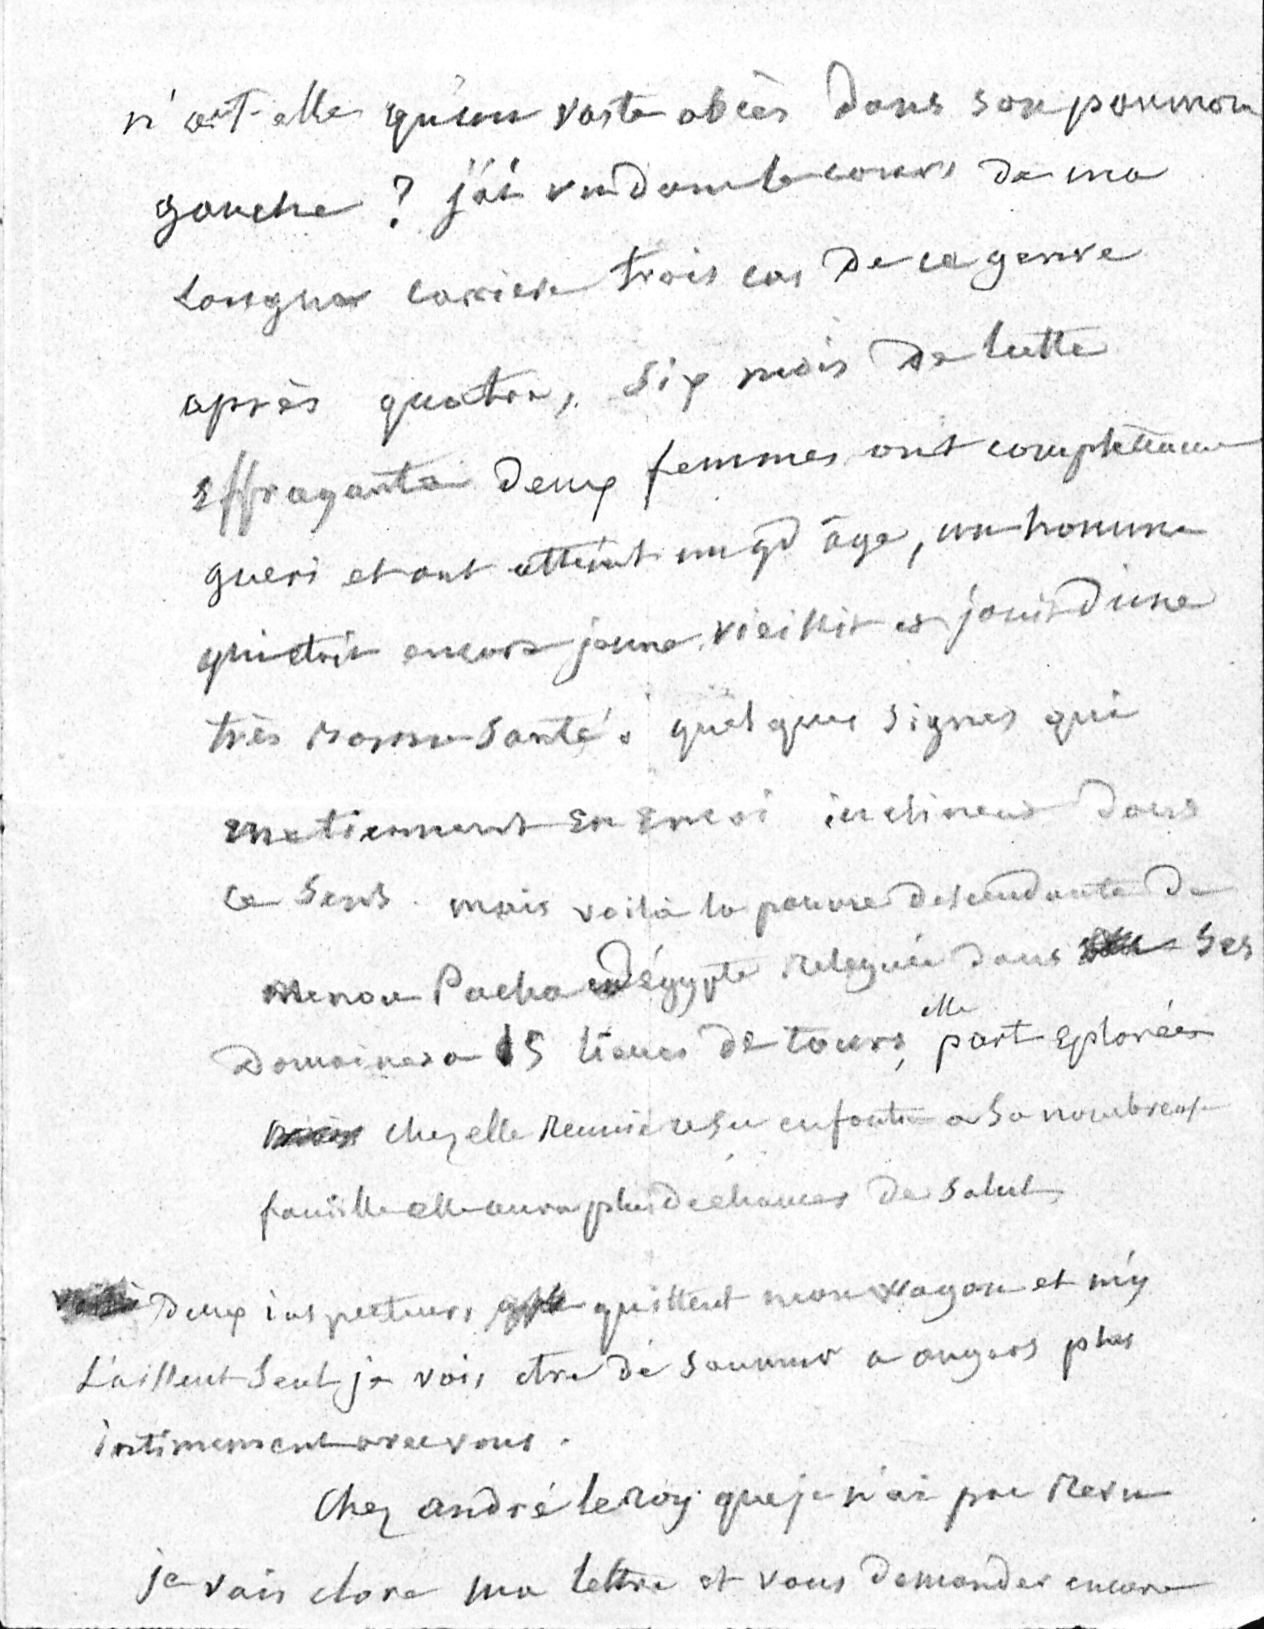 n'est-elle qu'un vaste abcès dans son poumon
gauche ? j'ai vu dans le cours de ma
longue carriere trois cas de ce genre
après quatre, six mois de lutte
effrayante deux femmes ont complettement
gueri et ont atteint un gd âge, un homme
qui etoit encore jeune vieillit et jouit d'une
très bonne santé. quelques signes qui
me tiennent en emoi inclinent dans
ce sens. mais voila la pauvre descendante de
menou Pacha d'égypte releguée dans ses
domaines a 15 lieues de tours, elle part eplorée
chez elle reunie a ses enfants a sa nombreuse
famille elle aura plus de chances de salut
deux inspecteurs quittent mon wagon et m'y
laissent seul je vais etre de saumur a angers plus
intimement avec vous.
Chez andré leroy que je n'ai pas revu
je vais clore ma lettre et vous demander encore